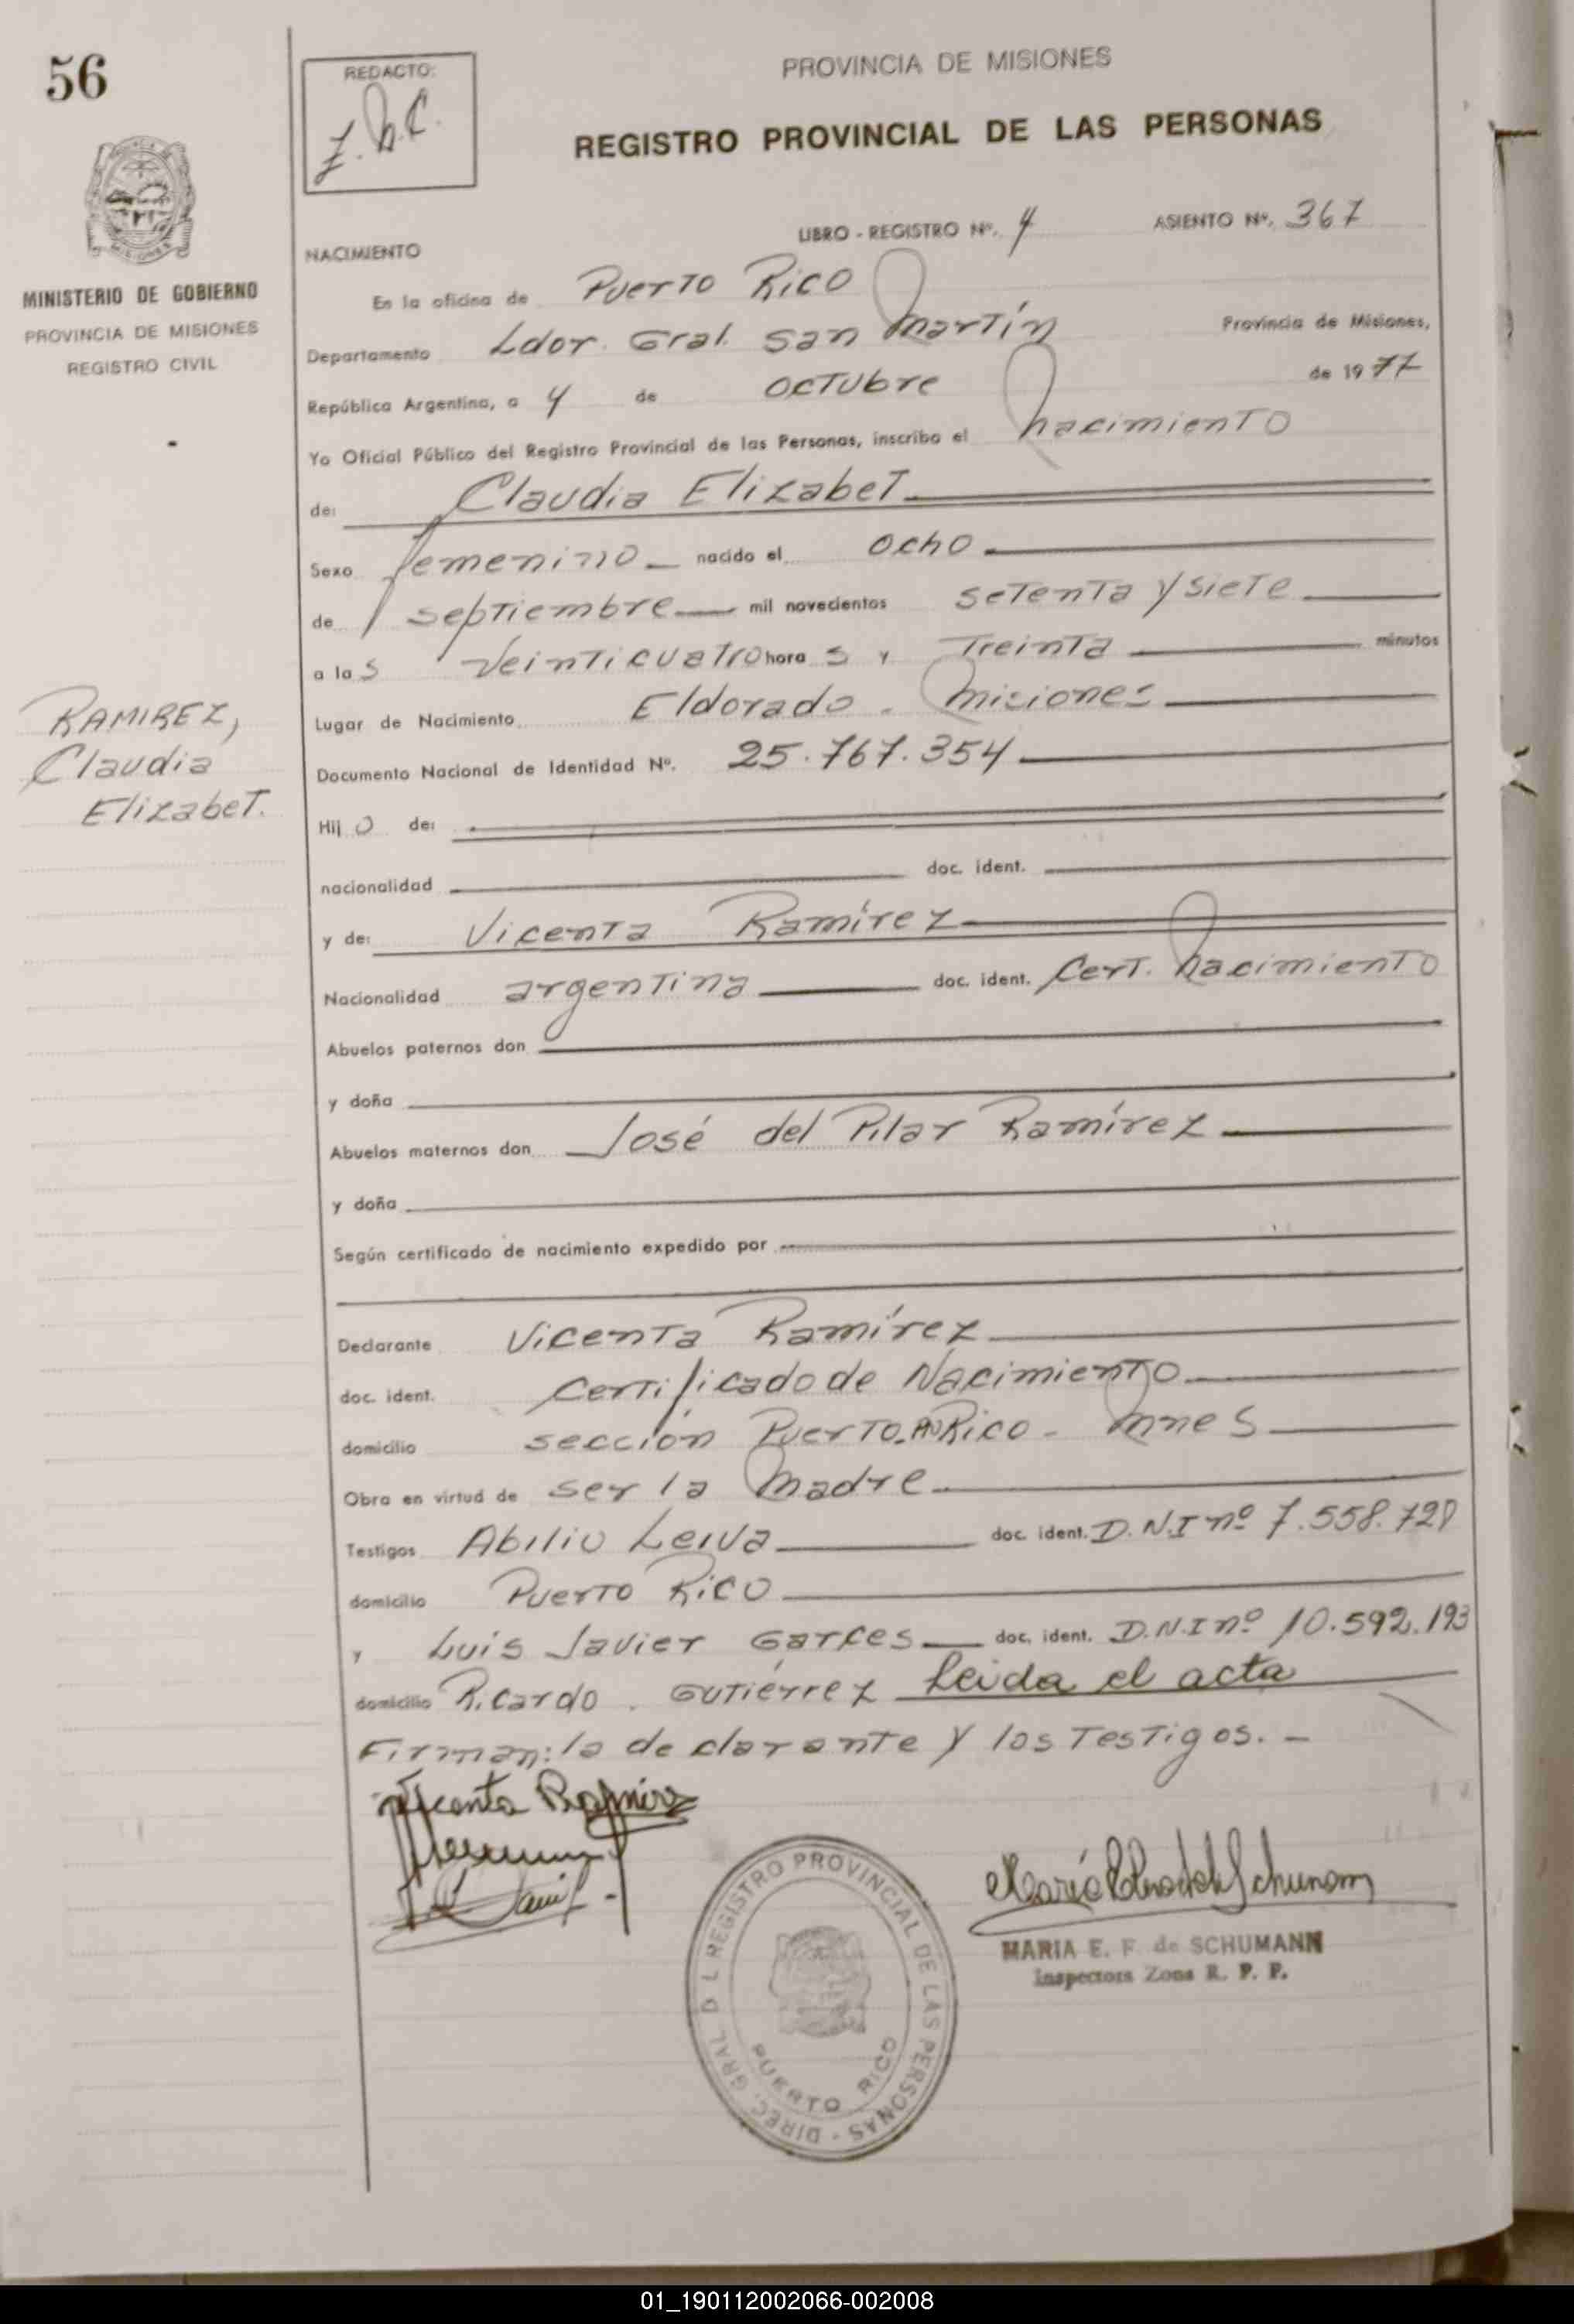 56
REDACTO:
PROVINCIA DE MISIONES
REGISTRO PROVINCIAL DE LAS PERSONAS
LIBRO - REGISTRO Nº. 4 ASIENTO Nº. 367
MINISTERIO DE GOBIERNO
PROVINCIA DE MISIONES
REGISTRO CIVIL
RAMIREZ,
Claudia
Elizabet.
NACIMIENTO
En la oficina de Puerto Rico
Departamento Ldor. Gral. San Martín Provincia de Misiones,
República Argentina, a 4 de octubre de 1977
Yo Oficial Público del Registro Provincial de las Personas, inscribo el nacimiento
de: Claudia Elizabet
Sexo femenino nacido el ocho
de septiembre mil novecientos setenta y siete
a las veinticuatro horas y treinta minutos
Lugar de Nacimiento Eldorado - Misiones
Documento Nacional de Identidad Nº. 25.767.354
Hijo de:
nacionalidad doc. ident.
y de: Vicenta Ramírez
Nacionalidad argentina doc. ident. Cert. Nacimiento
Abuelos paternos don
y doña
Abuelos maternos don José del Pilar Ramírez
y doña
Según certificado de nacimiento expedido por
Declarante Vicenta Ramírez
doc. ident. Certificado de Nacimiento
domicilio sección Puerto Rico - Mnes
Obra en virtud de ser la madre
Testigos Abilio Leiva doc. ident. D.N.I nº
domicilio Puerto Rico
y Luis Javier Garces doc. ident. D.N.I nº 10.592.193
domicilio Ricardo Gutiérrez Leida el acta
Firman: la declarante y los Testigos. -
Vicenta Ramirez
MARIA E. F. de SCHUMANN
Inspectora Zona R. P. P.
DIREC. GRAL D L REGISTRO PROVINCIAL DE LAS PERSONAS -
PUERTO RICO
01_190112002066-002008